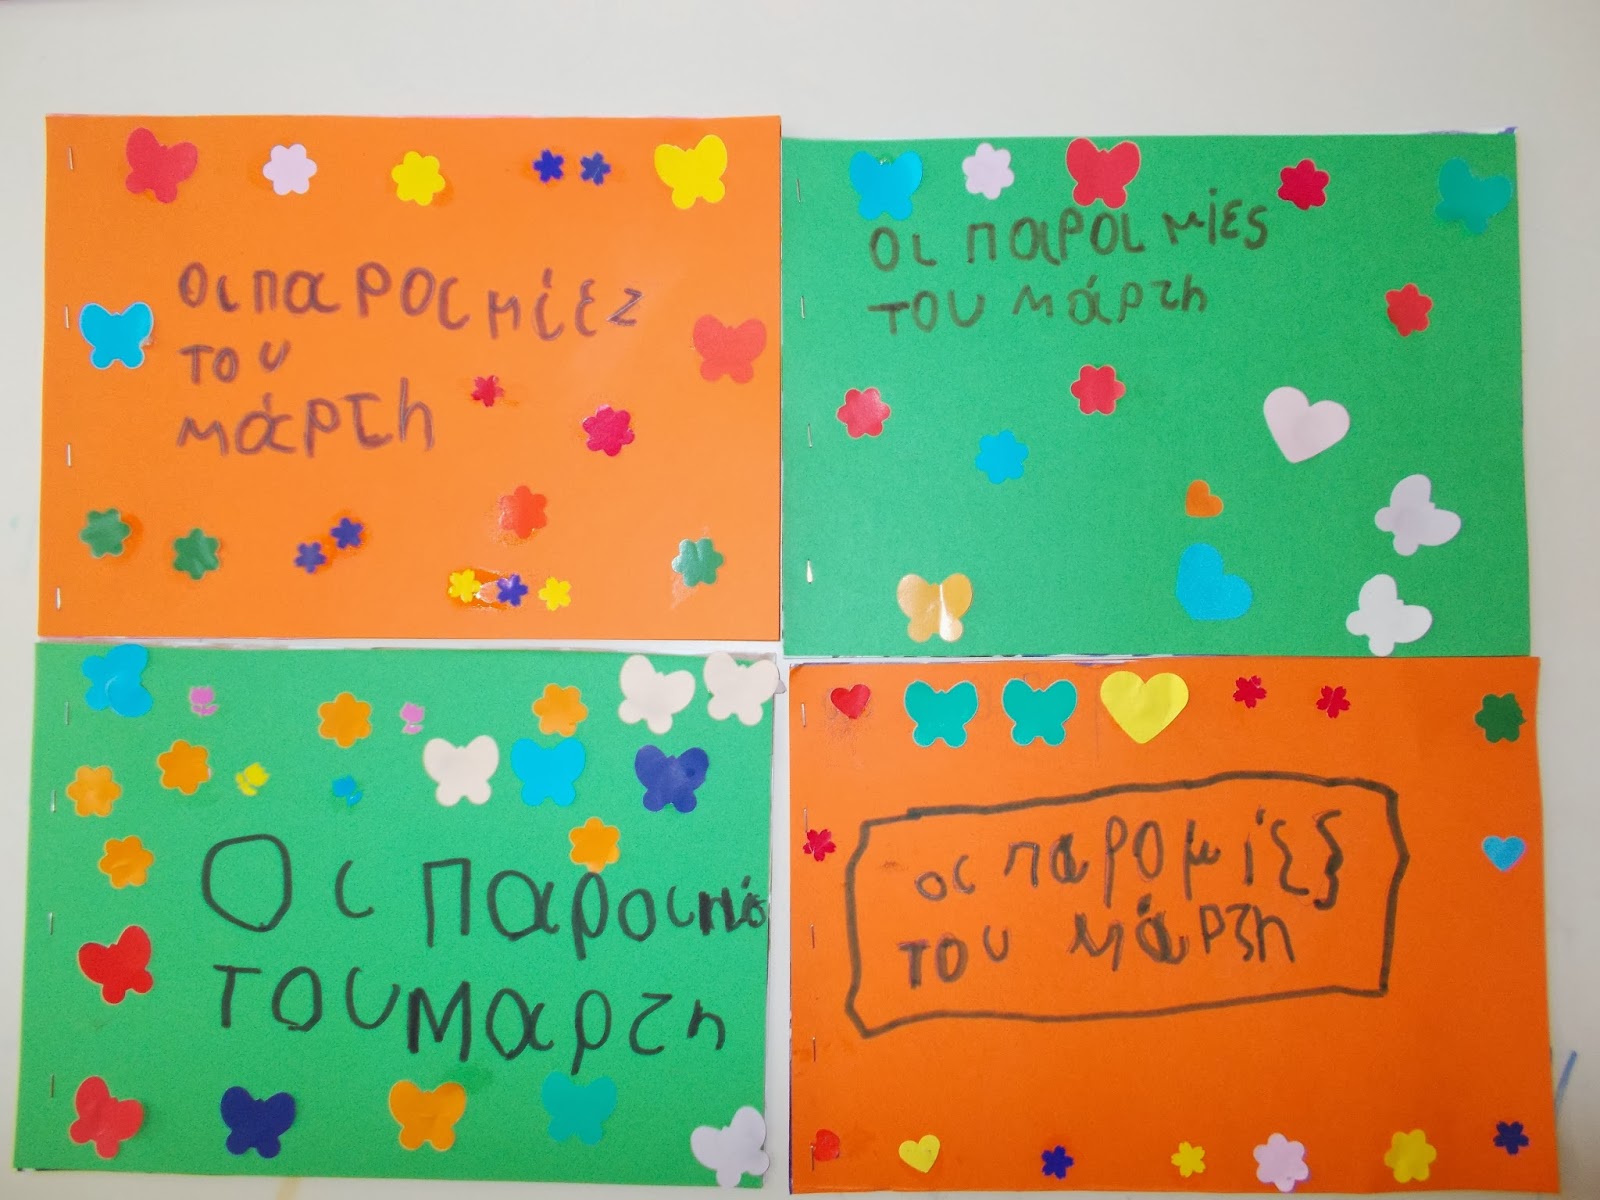 Οι παροιμίες
του
μάρτη
οι παροι μίες
του μάρτη
Οι παροιμίες
του Μαρτη
οι παρομίες
του μάρτη